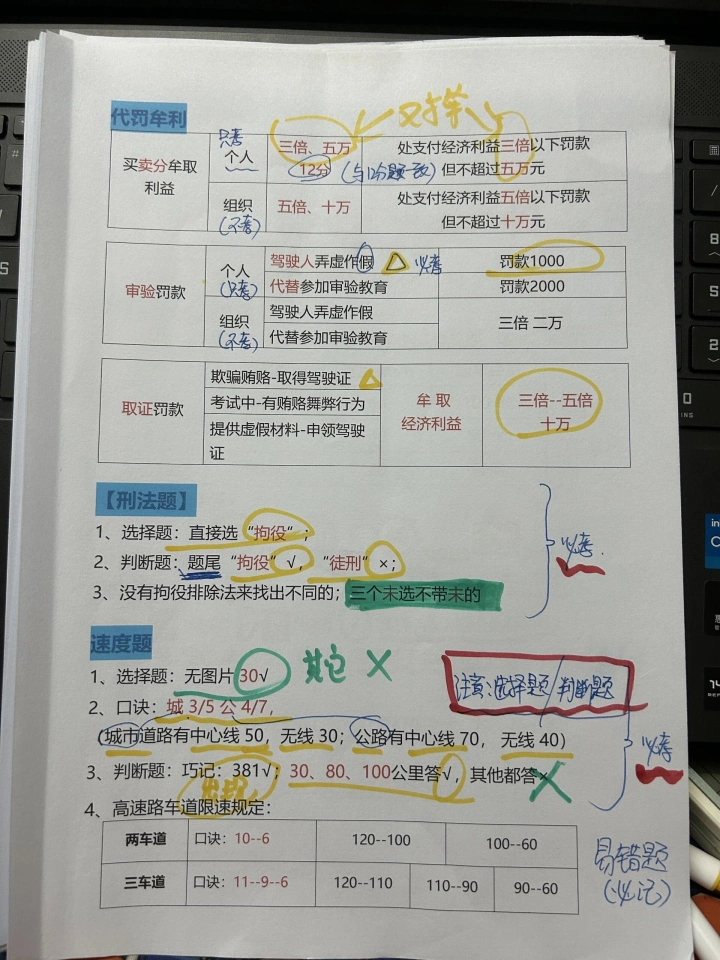 又择
代罚牟利
买卖分牟取利益
只考
个人
三倍、五万
12分
(与12分题一致)
处支付经济利益三倍以下罚款
但不超过五万元
组织
(不考)
五倍、十万
处支付经济利益五倍以下罚款
但不超过十万元
审验罚款
个人
(只考)
驾驶人弄虚作假
必考
罚款1000
代替参加审验教育
罚款2000
组织
(不考)
驾驶人弄虚作假
代替参加审验教育
三倍 二万
取证罚款
欺骗贿赂-取得驾驶证
考试中-有贿赂舞弊行为
提供虚假材料-申领驾驶证
牟 取
经济利益
三倍--五倍
十万
【刑法题】
1、选择题：直接选“拘役”；
2、判断题：题尾“拘役”√，“徒刑”×；
3、没有拘役排除法来找出不同的；三个未选不带未的
必考.
速度题
1、选择题：无图片 30√ 其它 ×
注意:选择题/判断题
2、口诀：城 3/5 公 4/7，
(城市道路有中心线 50，无线 30；公路有中心线 70， 无线 40)
3、判断题：巧记：381√；30、80、100公里答√，其他都答×
出现
必考
4、高速路车道限速规定：
两车道 口诀：10--6 120--100 100--60
三车道 口诀：11--9--6 120--110 110--90 90--60
易错题
(必记)